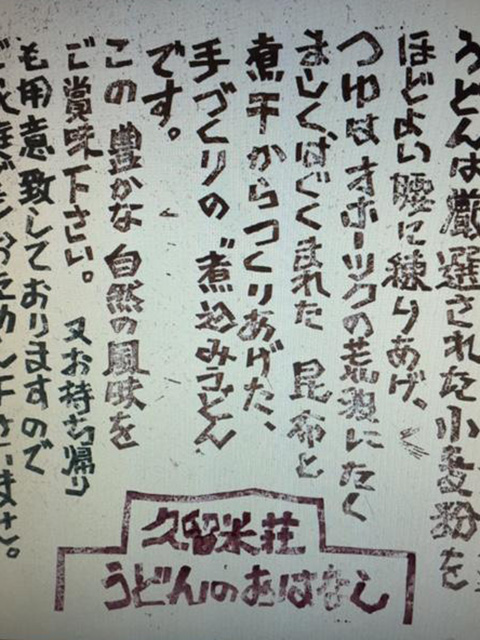 うどんは厳選された小麦粉を
ほどよい腰に練りあげ、
つゆはオホーツクの荒波にたく
ましくはぐくまれた 昆布と
煮干からつくりあげた、
手づくりの〝煮込みうどん
です。
この豊かな自然の風味を
ご賞味下さい。 又お持ち帰り
も用意致しておりますので
下さいませ。
久留米荘
うどんのおはなし